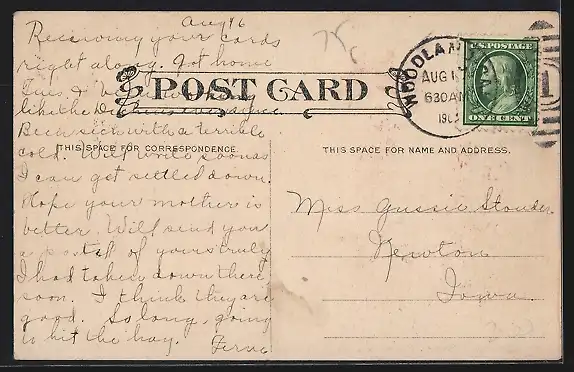 Aug 16
Receiving your cards
right along. Got home
Tues. &
like the
Been sick with a terrible
cold. Will write soon as
I can get settled down.
Hope your mother is
better. Will send you
a postal of yours truly
I had taken down there
soon. I think they are
good. So long, going
to hit the hay.
Ferne
POST CARD
THIS SPACE FOR CORRESPONDENCE.
THIS SPACE FOR NAME AND ADDRESS.
WOODLA
AUG 1
630AM
U.S. POSTAGE
ONE CENT
1
Miss Gussie Stouder
Newton
Iowa